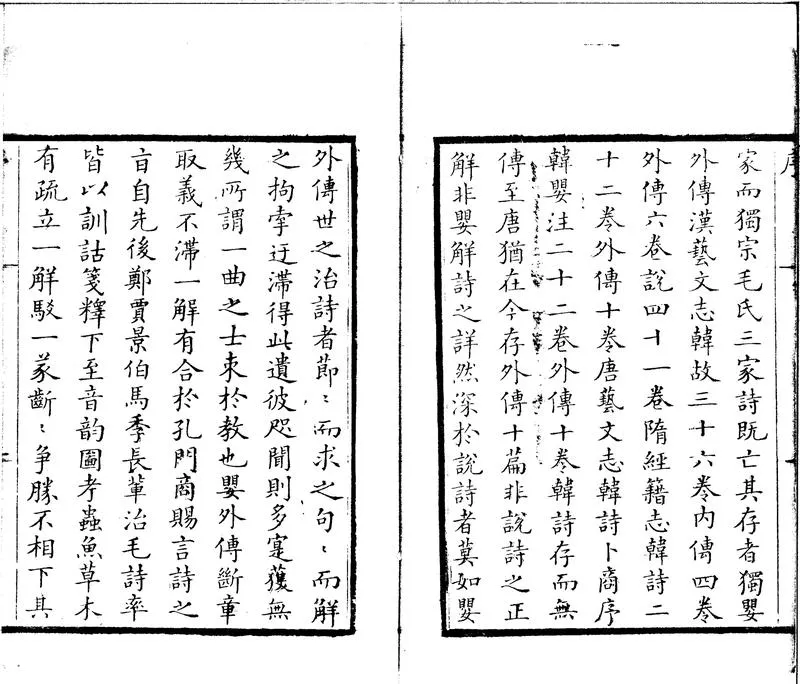 家而獨宗毛氏三家詩旣亡其存者獨嬰
外傳漢藝文志韓故三十六卷內傳四卷
外傳六卷說四十一卷隋經籍志韓詩二
十二卷外傳十卷唐藝文志韓詩卜商序
韓嬰注二十二卷外傳十卷韓詩存而無
傳至唐猶在今存外傳十篇非說詩之正
解非嬰解詩之詳然深於說詩者莫如嬰
外傳世之治詩者節〻而求之句〻而解
之拘牽迂滯得此遺彼咫聞則多寔獲無
幾所謂一曲之士束於敎也嬰外傳斷章
取義不滯一解有合於孔門商賜言詩之
旨自先後鄭賈景伯馬季長軰治毛詩率
皆以訓詁箋釋下至音韵圖考蟲魚草木
有疏立一解駁一義斷〻爭勝不相下其